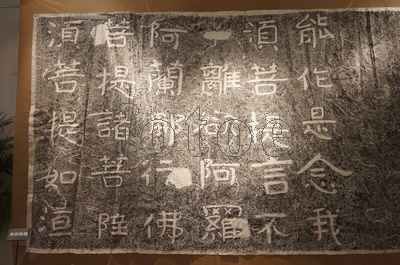 能作是念我
須菩提言不
離欲阿羅
阿蘭那行佛
菩提諸菩薩
須菩提如